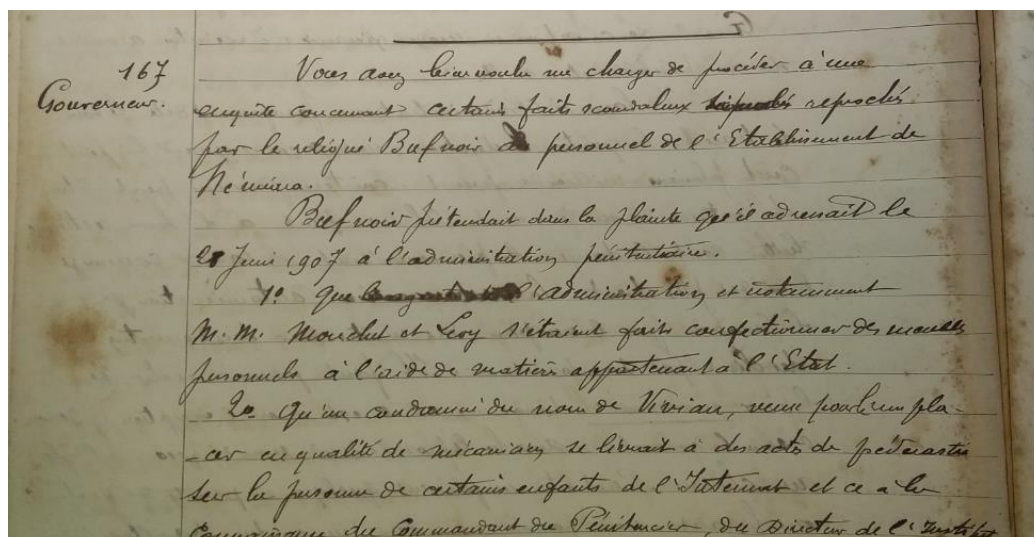 167
Gouverneur.
Vous avez bien voulu me charger de procéder à une
enquête concernant certains faits scandaleux reprochés
par le relégué Bœfnoir personnel de l'Etablissement de
Néméara.
Bœfnoir prétendait dans la plainte qu'il adressait le
28 Juin 1907 à l'administration pénitentiaire.
1º que l'administration et notamment
M. M. Mouchet et Leroy s'étaient faits confectionner des meubles
personnels à l'aide de matières appartenant à l'Etat.
2º Qu'un condamné du nom de Vivian, venu pour le rempla-
-cer en qualité de mécanicien se livrait à des actes de pédérastie
sur la personne de certains enfants de l'Internat et ce à la
connaissance du Commandant du Pénitencier, du Directeur de l'